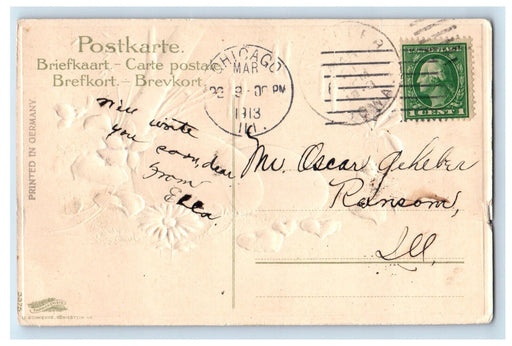 Postkarte.
Briefkaart - Carte postale
Brefkort. - Brevkort.
CHICAGO
MAR
1913
ILL.
U.S. POSTAGE
1 CENT 1
Will write
you soon, dear
from
Ella.
Mr. Oscar Geheber
Ransom,
Ill.
PRINTED IN GERMANY